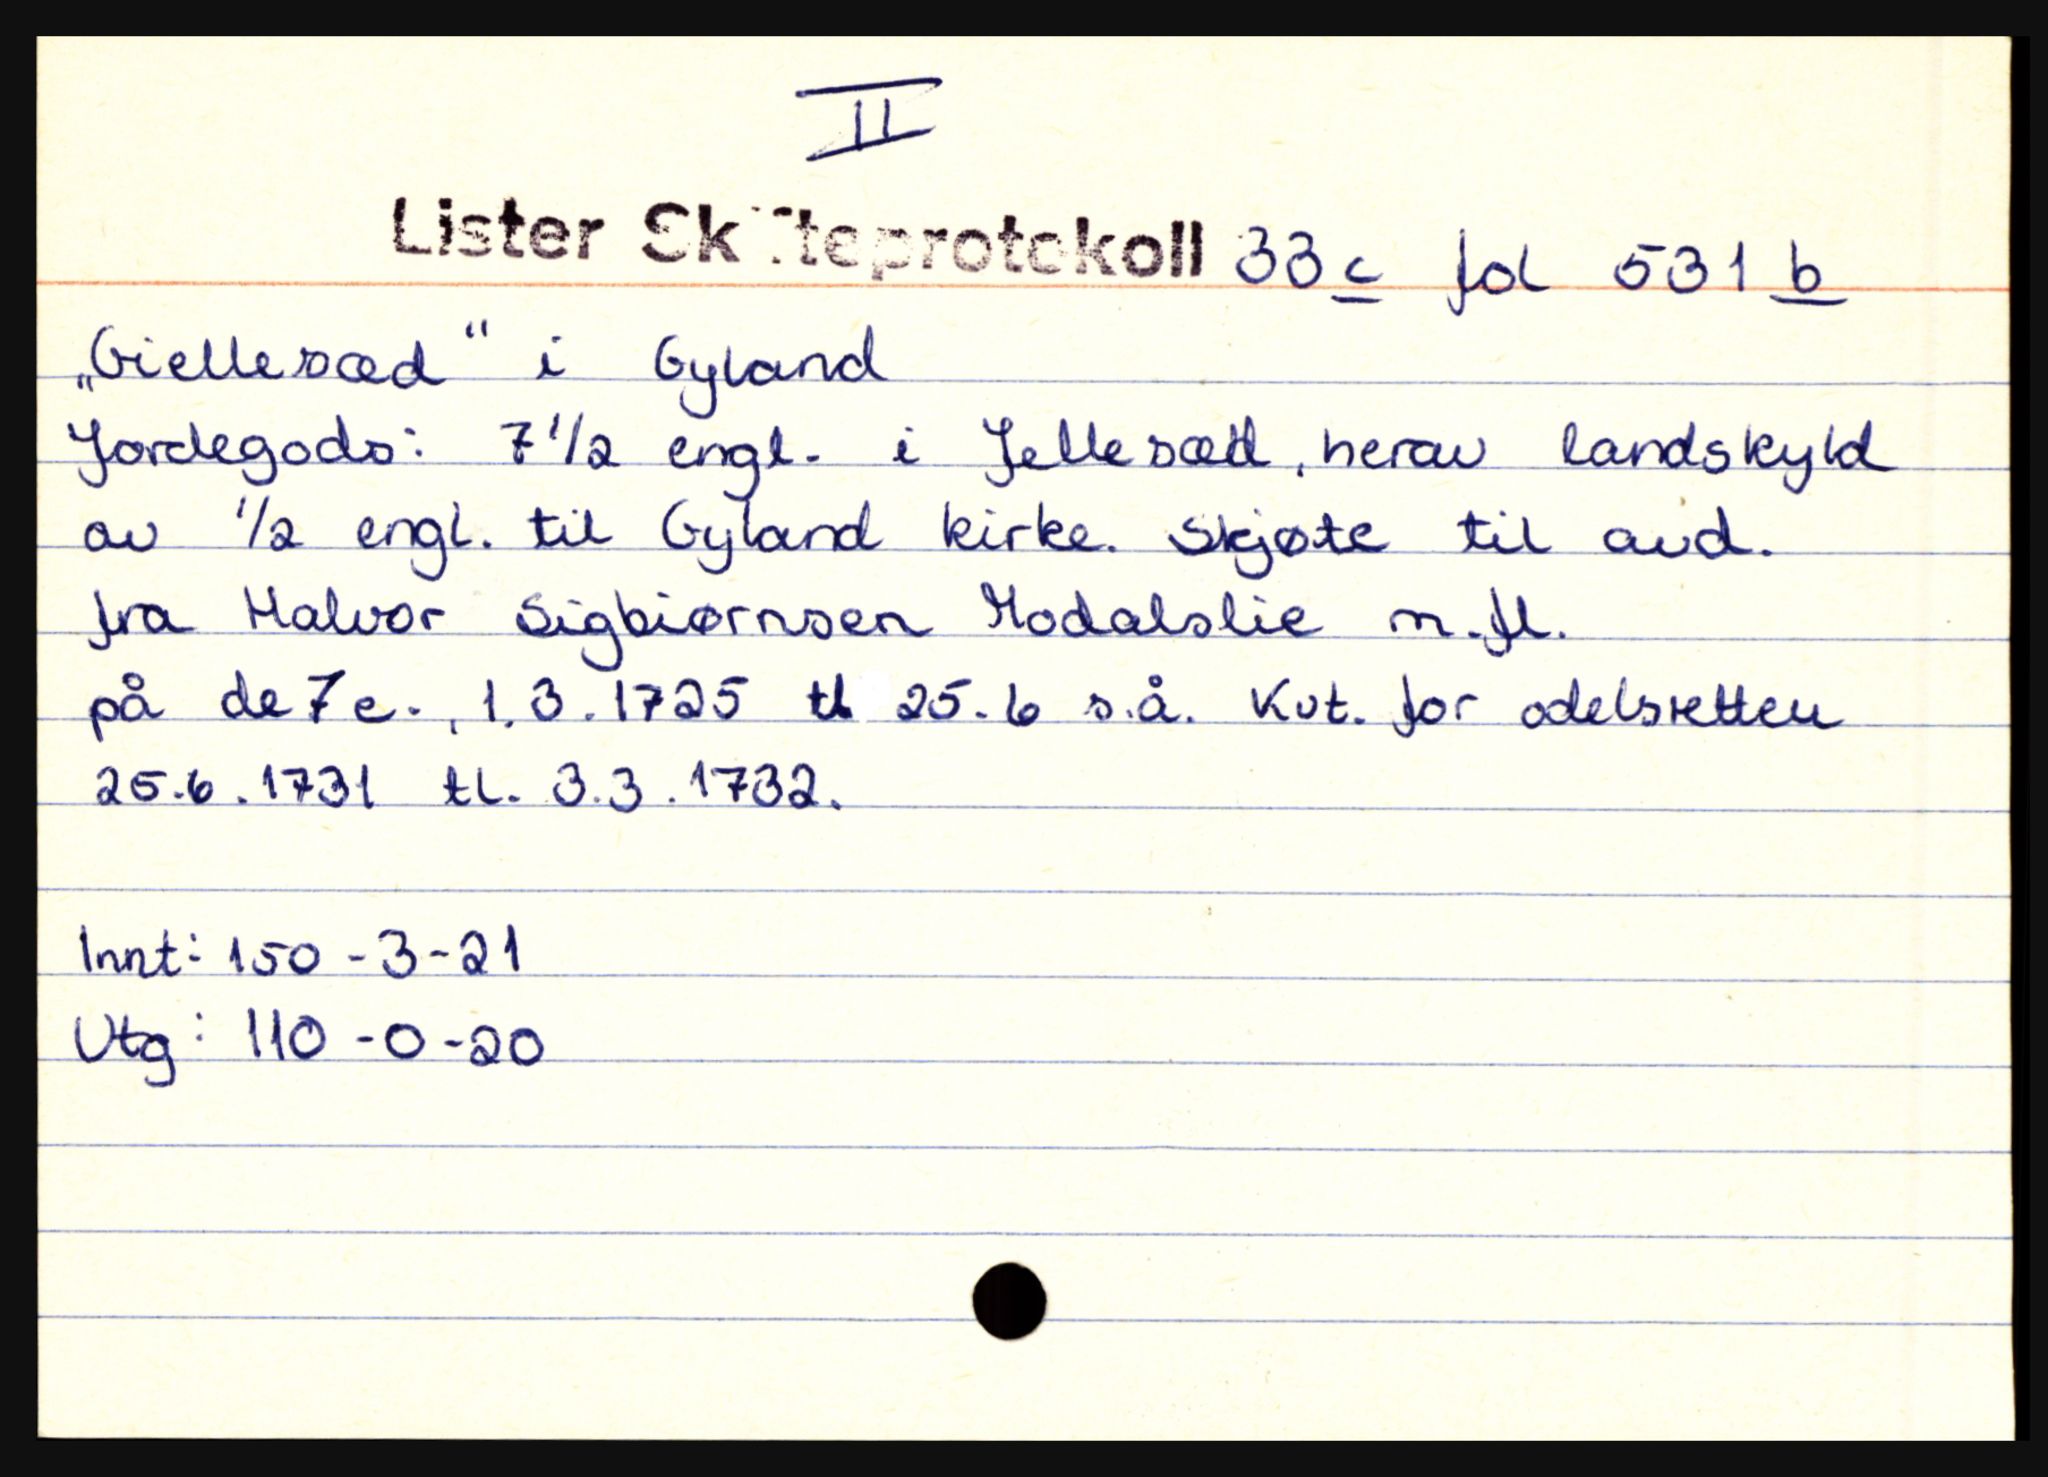 II
Lister Skifteprotokoll 33 c fol 531 b
„Giellesæd“ i Gyland
Jordegods: 7 1/2 engl. i Jellesæd, herav landskyld
av 1/2 engl. til Gyland kirke. Skjøte til avd.
fra Halvor Sigbiørnsen Modalslie m.fl.
på de 7 e., 1.3.1725 tl 25.6 s.å. Kvt. for odelsretten
25.6.1731 tl. 3.3.1732.
Innt: 150-3-21
Utg: 110-0-20